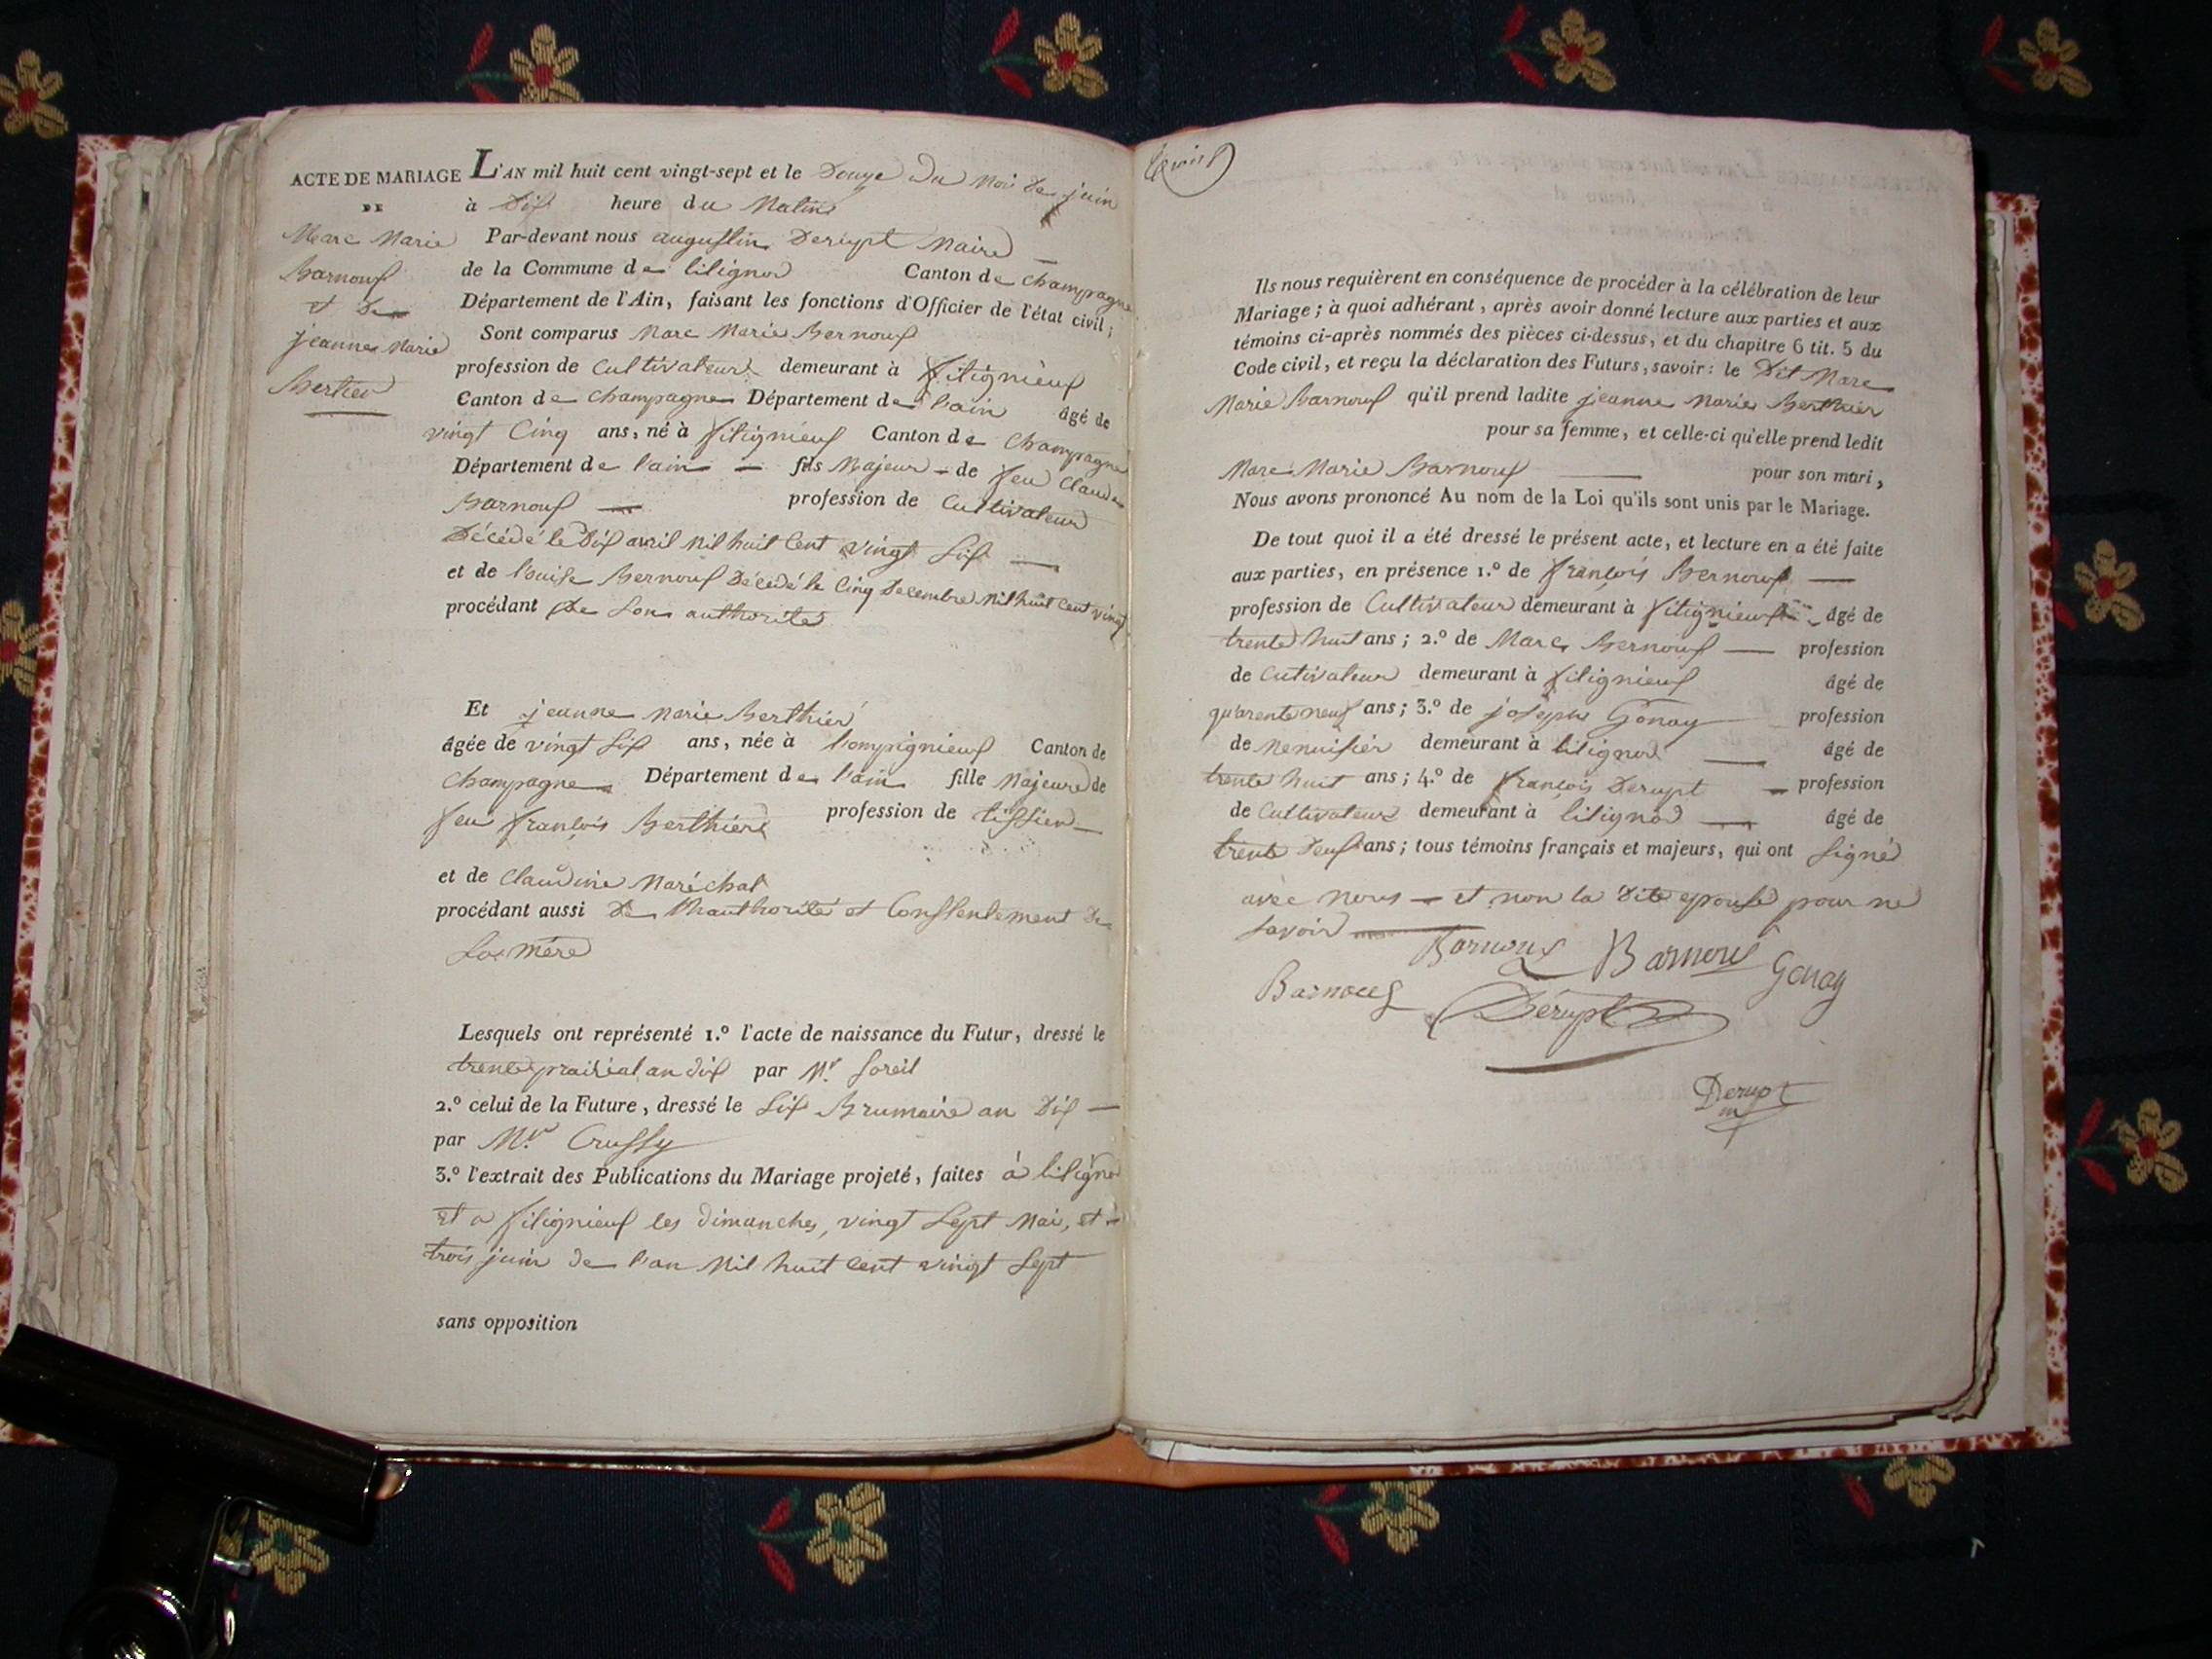 ACTE DE MARIAGE
DE
Marc Marie
Barnouf
et de
jeanne Marie
Bertier
L'AN mil huit cent vingt-sept et le Douze du Moi de juin
à Dix heure du Matin
Par-devant nous augustin Derupt Maire
de la Commune de lilignod Canton de champagne
Département de l'Ain, faisant les fonctions d'Officier de l'état civil;
Sont comparus Marc Marie Bernouf
profession de Cultivateur demeurant à fitignieuf
Canton de champagne Département de l'ain âgé de
vingt Cinq ans, né à fitignieuf Canton de Champagne
Département de l'ain — fils Majeur - de feu Claude
Barnouf — profession de Cultivateur
Décédé le Dix avril Mil huit Cent vingt Six —
et de l'ouise Bernouf Décédé le Cinq Decembre Mil huit Cent vingt
procédant de Son authorité
Et jeanne Marie Berthier
âgée de vingt Six ans, née à Canton de
Champagne Département de l'ain fille Majeure de
feu françois Berthier profession de tissier —
et de Claudine Maréchal
procédant aussi De l'hauthorité et Consentement De
Sa mère
Lesquels ont représenté 1.º l'acte de naissance du Futur, dressé le
trente prairial an dix par Mr.
2.º celui de la Future, dressé le Six Brumaire an Dix —
par Mr. Crussy
3.º l'extrait des Publications du Mariage projeté, faites à lilignod
et a fitignieuf les dimanches, vingt Sept Mai, et -
trois juin de l'an Mil huit Cent vingt Sept
sans opposition
Ils nous requièrent en conséquence de procéder à la célébration de leur
Mariage; à quoi adhérant, après avoir donné lecture aux parties et aux
témoins ci-après nommés des pièces ci-dessus, et du chapitre 6 tit. 5 du
Code civil, et reçu la déclaration des Futurs, savoir: le Dit Marc
Marie Barnouf qu'il prend ladite jeanne Marie Berthier
pour sa femme, et celle-ci qu'elle prend ledit
Marc Marie Barnouf — pour son mari,
Nous avons prononcé Au nom de la Loi qu'ils sont unis par le Mariage.
De tout quoi il a été dressé le présent acte, et lecture en a été faite
aux parties, en présence 1.º de françois Bernouf —
profession de Cultivateur demeurant à fitignieuf - âgé de
trente huit ans; 2.º de Marc Bernouf — profession
de Cutivateur demeurant à fitignieuf âgé de
qu'arente neuf ans; 3.º de joseph Gonay - profession
de Menuisier demeurant à lilignod — âgé de
trente huit ans; 4.º de françois Derupt - profession
de Cultivateur demeurant à lilignod — âgé de
trente Deux ans; tous témoins français et majeurs, qui ont Signé
avec nous — et non la Dite epouse pour ne
Savoir —
Barnouf Barnouf Gonay
Barnouf Dérupt
Derupt
m